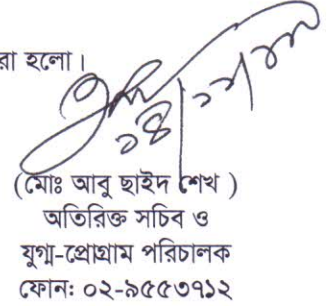 রা হলো।
(মোঃ আবু ছাইদ শেখ )
অতিরিক্ত সচিব ও
যুগ্ম-প্রোগ্রাম পরিচালক
ফোন: ০২-৯৫৫৩৭১২